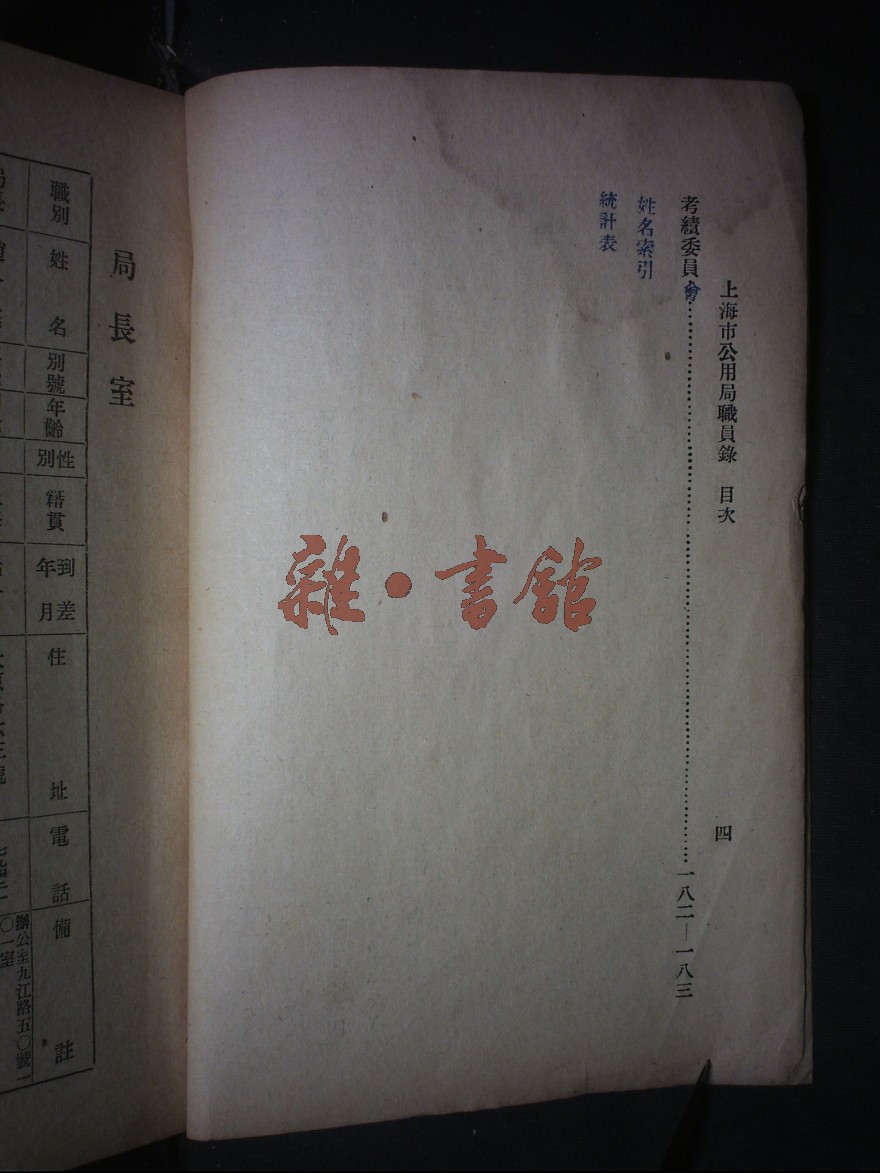 上海市公用局職員錄 目次 四
考績委員會……一八二—一八三
姓名索引
統計表
雜·書館
局長室
職別
姓名
別號
年齡
性別
籍貫
到差年月
住址
電話
備註
辦公室九江路五〇號一
〇一室